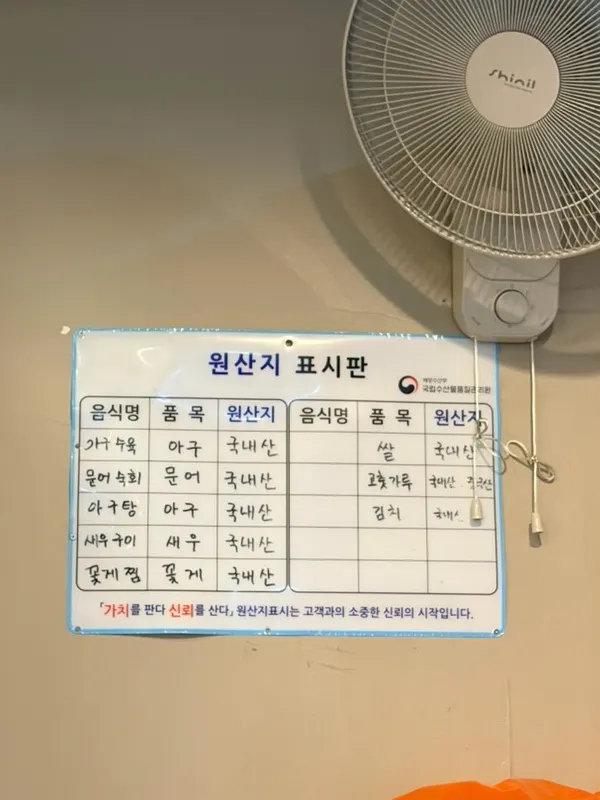 Shinil
원산지 표시판
해양수산부
국립수산물품질관리원
음식명 품 목 원산지 음식명 품 목 원산지
수육 아구 국내산 쌀 국내산
문어숙회 문어 국내산 고춧가루 국내산 . 중국산
아구탕 아구 국내산 김치
새우구이 새우 국내산
꽃게찜 꽃게 국내산
「가치를 판다 신뢰를 산다」 원산지표시는 고객과의 소중한 신뢰의 시작입니다.